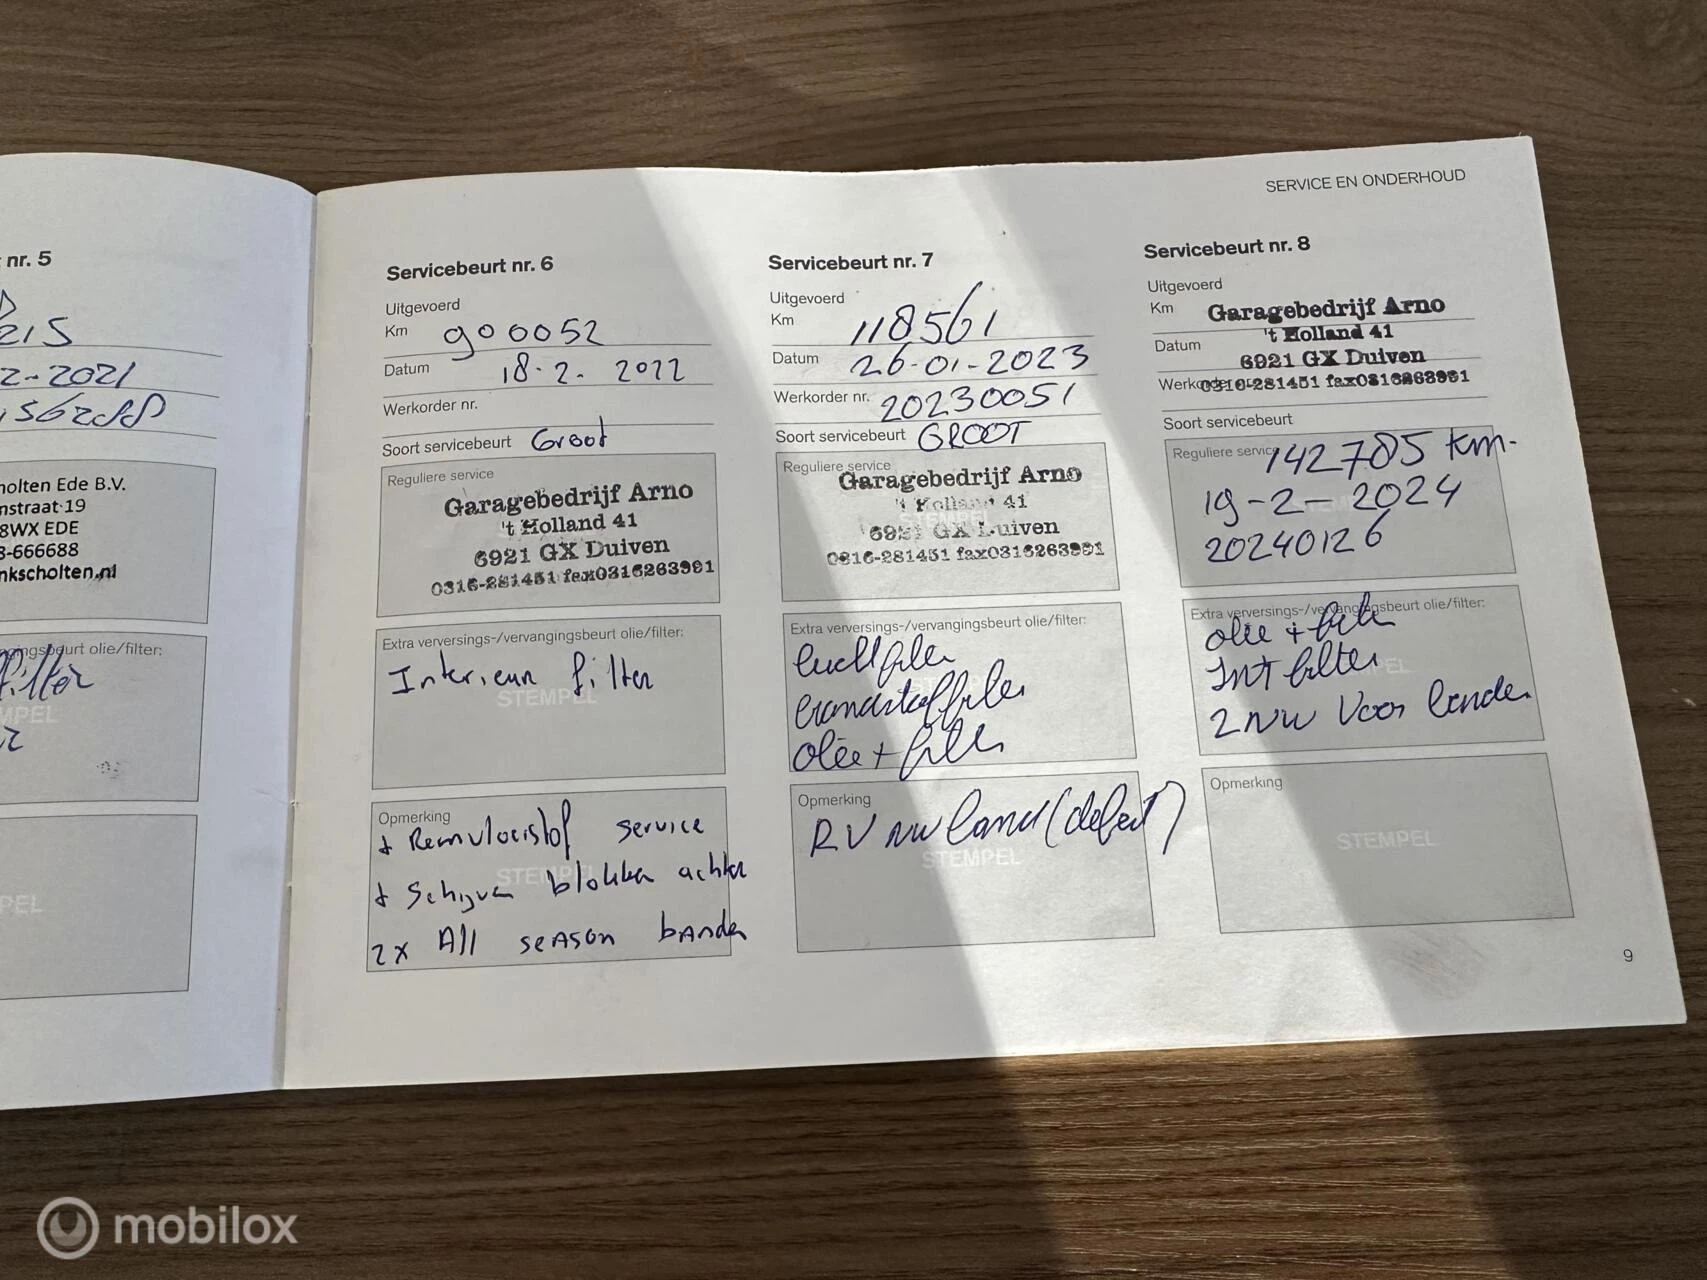 nr. 5
215
2-2021
holten Ede B.V.
nstraat 19
8WX EDE
8-666688
nkscholten.nl
gingsbeurt olie/filter:
filter
MPEL
PEL
SERVICE EN ONDERHOUD
Servicebeurt nr. 6
Uitgevoerd
Km 900052
Datum 18-2-2022
Werkorder nr.
Soort servicebeurt Groot
Reguliere service
Garagebedrijf Arno
't Holland 41
6921 GX Duiven
0316-281451 fax0316263991
Extra verversings-/vervangingsbeurt olie/filter:
Interieur filter
STEMPEL
Opmerking
+ Remvloeistof service
STEMPEL
+ Schijven blokken achter
2x All season banden
Servicebeurt nr. 7
Uitgevoerd
Km 118561
Datum 26-01-2023
Werkorder nr. 20230051
Soort servicebeurt GROOT
Reguliere service
Garagebedrijf Arno
't Holland 41
6921 GX Duiven
0316-281451 fax0316263991
Extra verversings-/vervangingsbeurt olie/filter:
luchtfilter
brandstoffilter
olie + filter
Opmerking
RV nw band (defect)
STEMPEL
Servicebeurt nr. 8
Uitgevoerd
Km
Garagebedrijf Arno
't Holland 41
Datum
6921 GX Duiven
0316-281451 fax0316263991
Soort servicebeurt
Reguliere service
142785 km.
19-2-2024
20240126
Extra verversings-/vervangingsbeurt olie/filter:
olie + filter
Int filter
2 nw voor banden
Opmerking
STEMPEL
9
mobilox